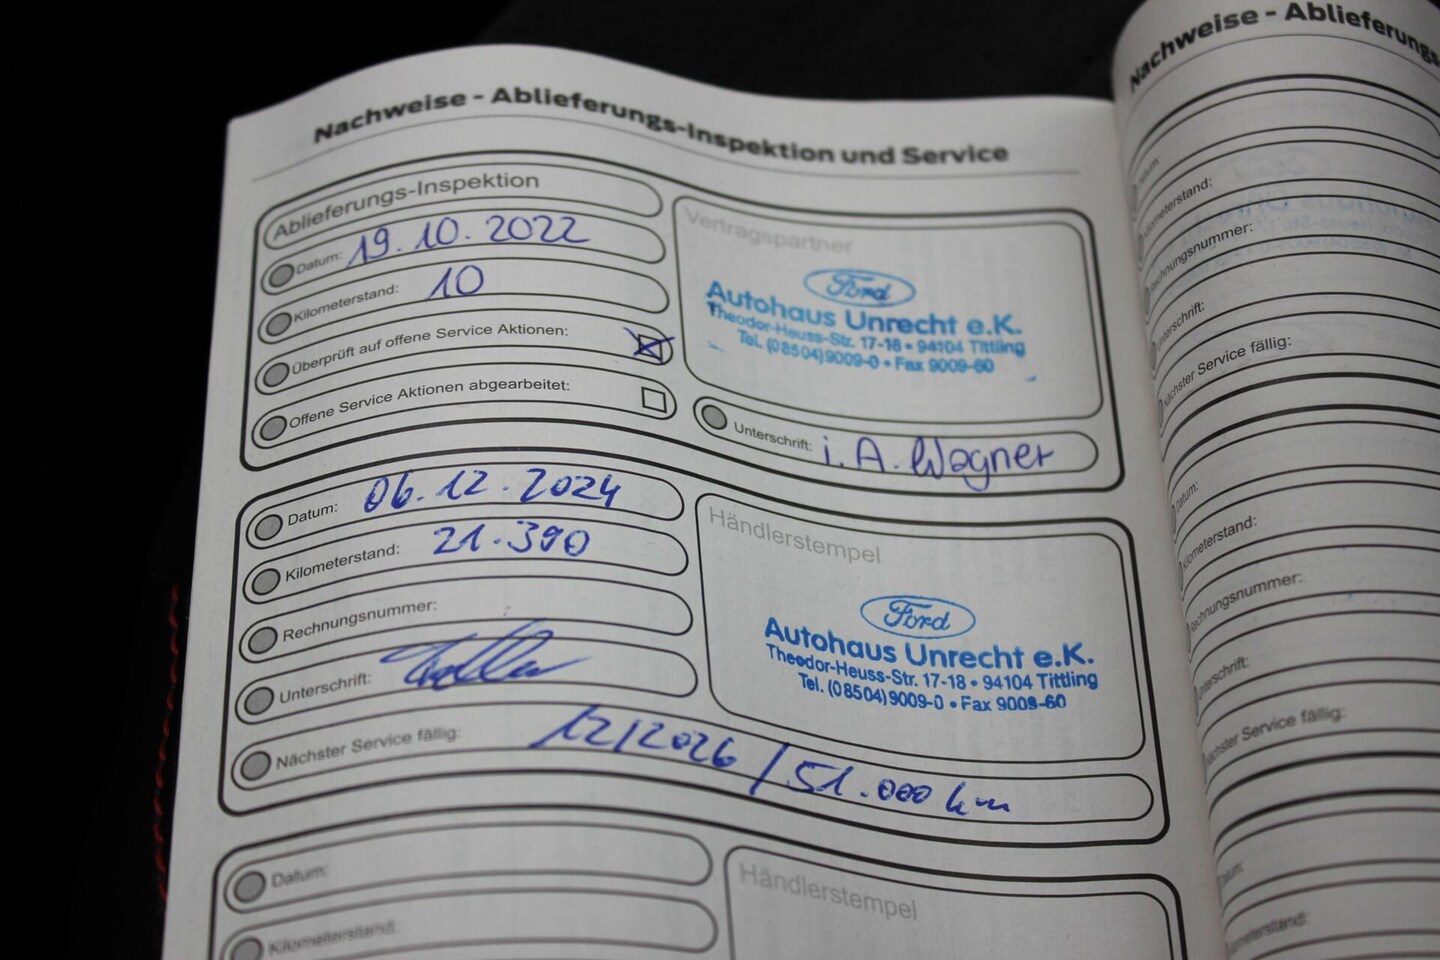 Nachweise - Ablieferungs-Inspektion und Service
Ablieferungs-Inspektion
Datum: 19.10.2022
Kilometerstand: 10
Überprüft auf offene Service Aktionen:
Offene Service Aktionen abgearbeitet:
Vertragspartner
Ford
Autohaus Unrecht e.K.
Theodor-Heuss-Str. 17-18 • 94104 Tittling
Tel. (08504)9009-0 • Fax 9009-60
Unterschrift: i. A. Wagner
Datum: 06.12.2024
Kilometerstand: 21.390
Rechnungsnummer:
Unterschrift:
Nächster Service fällig: 12/2026 / 51.000 km
Händlerstempel
Ford
Autohaus Unrecht e.K.
Theodor-Heuss-Str. 17-18 • 94104 Tittling
Tel. (08504)9009-0 • Fax 9009-60
Datum:
Kilometerstand:
Händlerstempel
Nachweise - Ablieferungs-
Datum:
Kilometerstand:
Rechnungsnummer:
Unterschrift:
Nächster Service fällig:
Datum:
Kilometerstand:
Rechnungsnummer:
Unterschrift:
Nächster Service fällig:
Datum:
Kilometerstand: